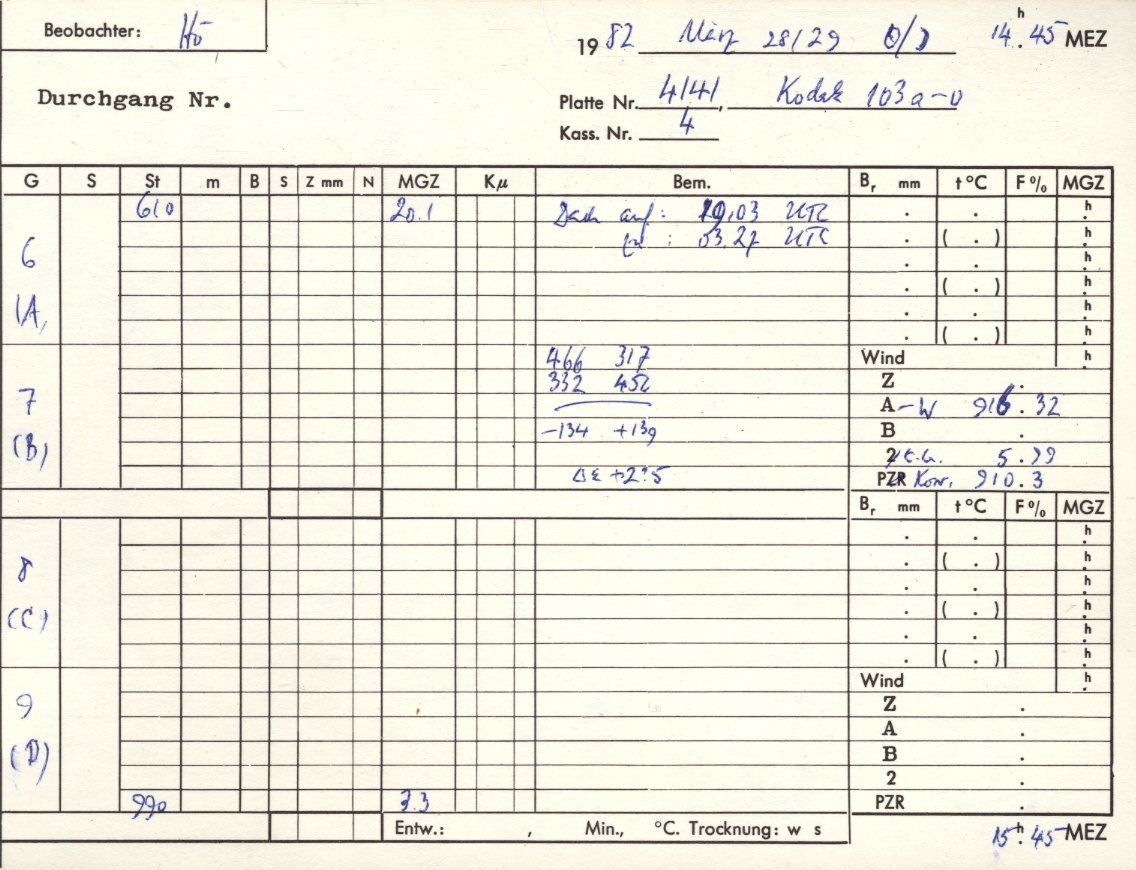 Beobachter: Hö
19 82 März 28/29 14 h . 45 MEZ
Durchgang Nr.
Platte Nr. 4141, Kodak 103a-0
Kass. Nr. 4
G S St m B S Z mm N MGZ Kμ Bem. Br mm t°C F% MGZ
610 20.1 Dach auf: 19.03 UTC . . h.
zu : 03.27 UTC . ( . ) h.
6 . . h.
. ( . ) h.
(A) . . h.
. ( . ) h.
466 317 Wind h.
332 452 Z .
7 A - W 916.32
-134 +139 B .
(B) 2 5.99
Δε +2?5 PZR Korr. 910.3
Br mm t°C F% MGZ
. . h.
8 . ( . ) h.
. . h.
(C) . ( . ) h.
. . h.
. ( . ) h.
Wind h.
9 Z .
A .
(D) B .
2 .
990 3.3 PZR .
Entw.: , Min., °C. Trocknung: w s
15 h . 45 MEZ